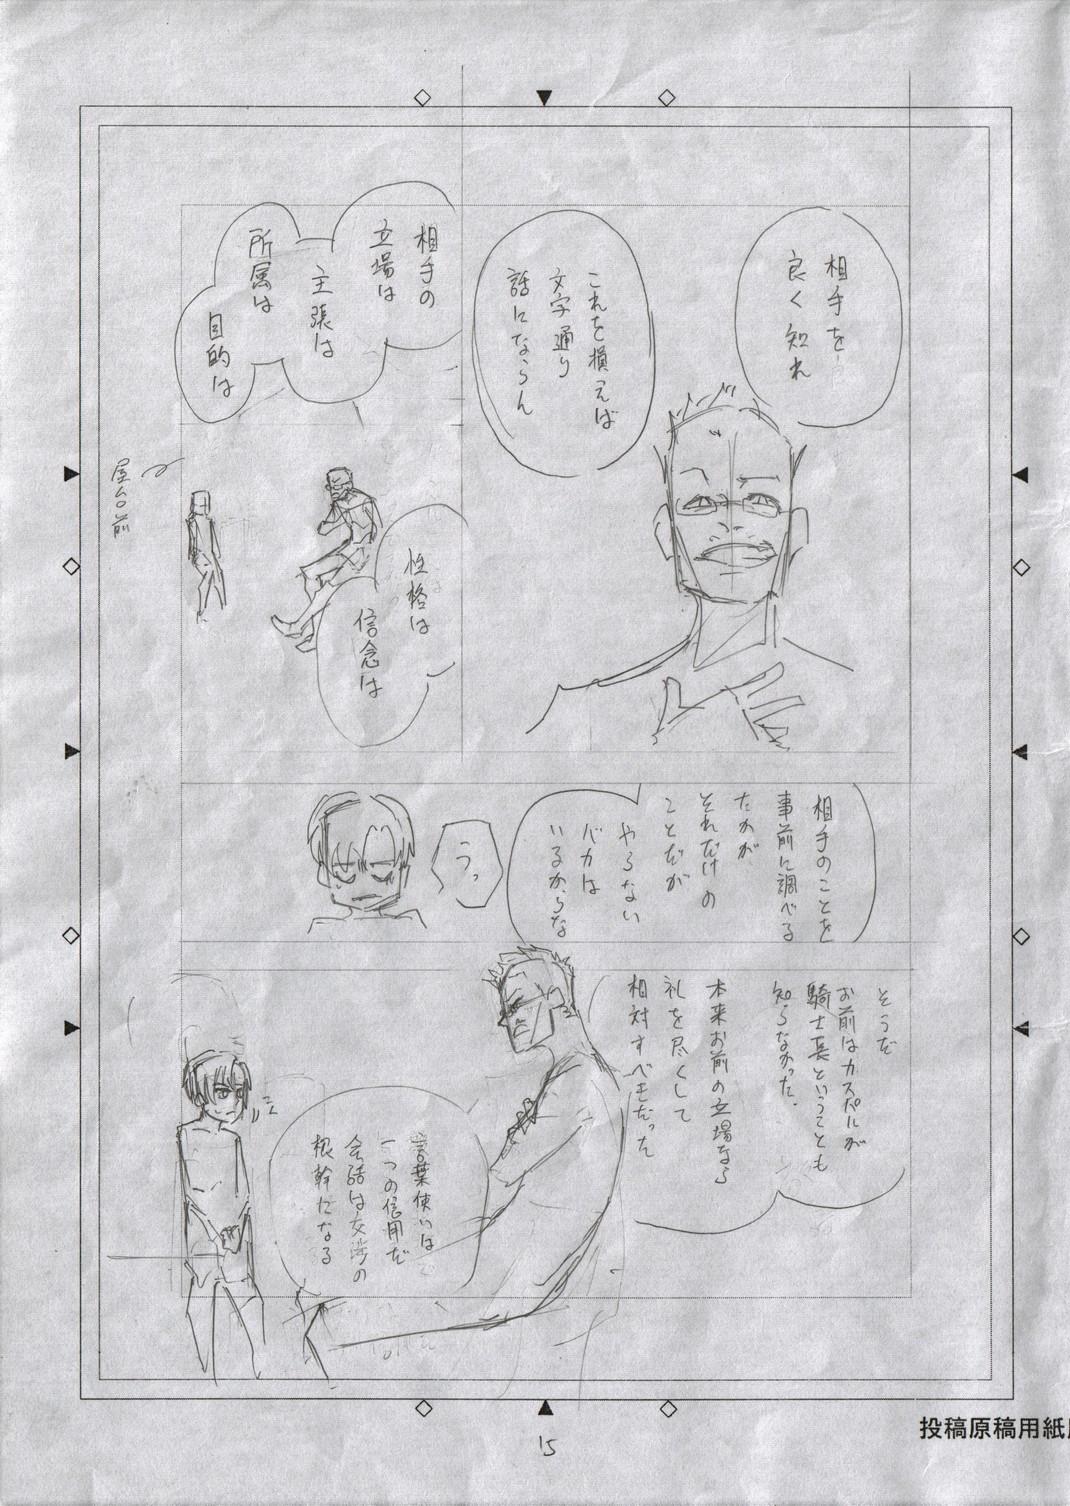 相手を
良く知れ
これを損えば
文字通り
話にならん
相手の
立場は
主張は
所属は
目的は
屋台前
性格は
信念は
相手のことを
事前に調べる
たかが
それだけの
ことだが
やらない
バカは
いるからな
うっ
そうだ
お前はカスパルが
騎士長ということも
知らなかった.
本来お前の立場なら
礼を尽くして
相対すべきだった
言葉使いは
一つの信用だ
会話は交渉の
根幹たなる
15
投稿原稿用紙